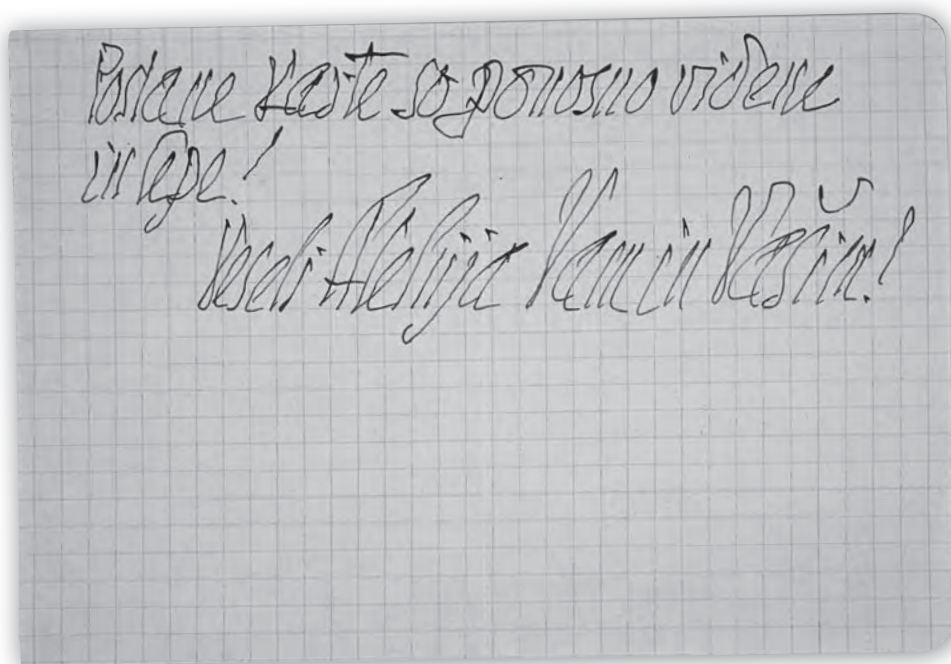 Poslane karte so ponosno videne
in lepe!
Veseli Aleluja Vam in Vašim!